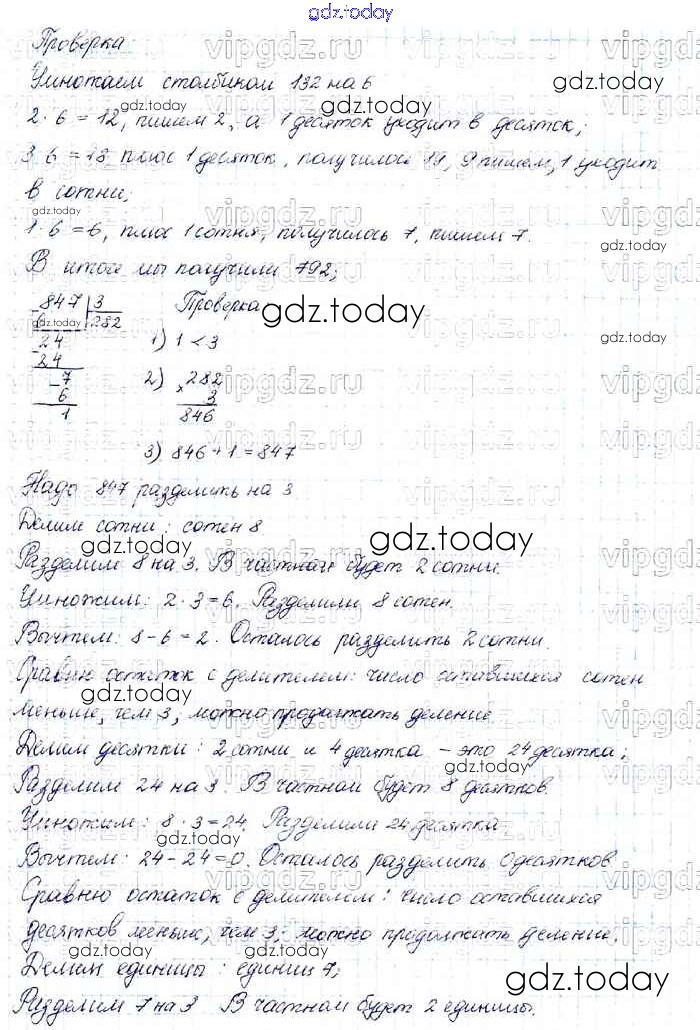 gdz.today
Проверка
Умножаем столбиком 132 на 6
2 · 6 = 12, пишем 2, а 1 десяток уходит в десяток;
3 · 6 = 18 плюс 1 десяток, получилось 19, 9 пишем, 1 уходит
в сотни;
1 · 6 = 6, плюс 1 сотня, получилось 7, пишем 7.
В итоге мы получили 792;
- 847 | 3 Проверка
6 282
24 1) 1 < 3
- 24
- 7 2) × 282
6 3
1 846
3) 846 + 1 = 847
Надо 847 разделить на 3
Делим сотни: сотен 8
Разделим 8 на 3. В частном будет 2 сотни.
Умножим: 2 · 3 = 6. Разделили 8 сотен.
Вычтем: 8 - 6 = 2. Осталось разделить 2 сотни.
Сравню остаток с делителем: число оставшихся сотен
меньше, чем 3, можно продолжать деление.
Делим десятки: 2 сотни и 4 десятка - это 24 десятка;
Разделим 24 на 3. В частном будет 8 десятков.
Умножим: 8 · 3 = 24. Разделили 24 десятка.
Вычтем: 24 - 24 = 0. Осталось разделить 0 десятков
Сравню остаток с делителем: число оставшихся
десятков меньше, чем 3, можно продолжить деление.
Делим единицы: единиц 7;
Разделим 7 на 3 В частном будет 2 единицы.